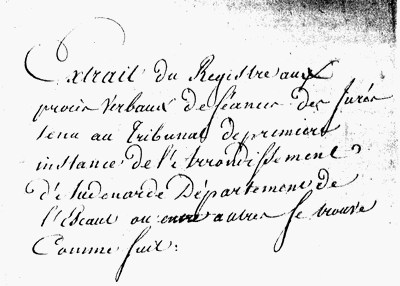 Extrait du Registre aux
procès Verbaux de séances des jurés
tenu au Tribunal de premiere
instance de l'arrondissement
d'Audenarde Département de
l'Escaut ou entre autres se trouve
Comme suit: